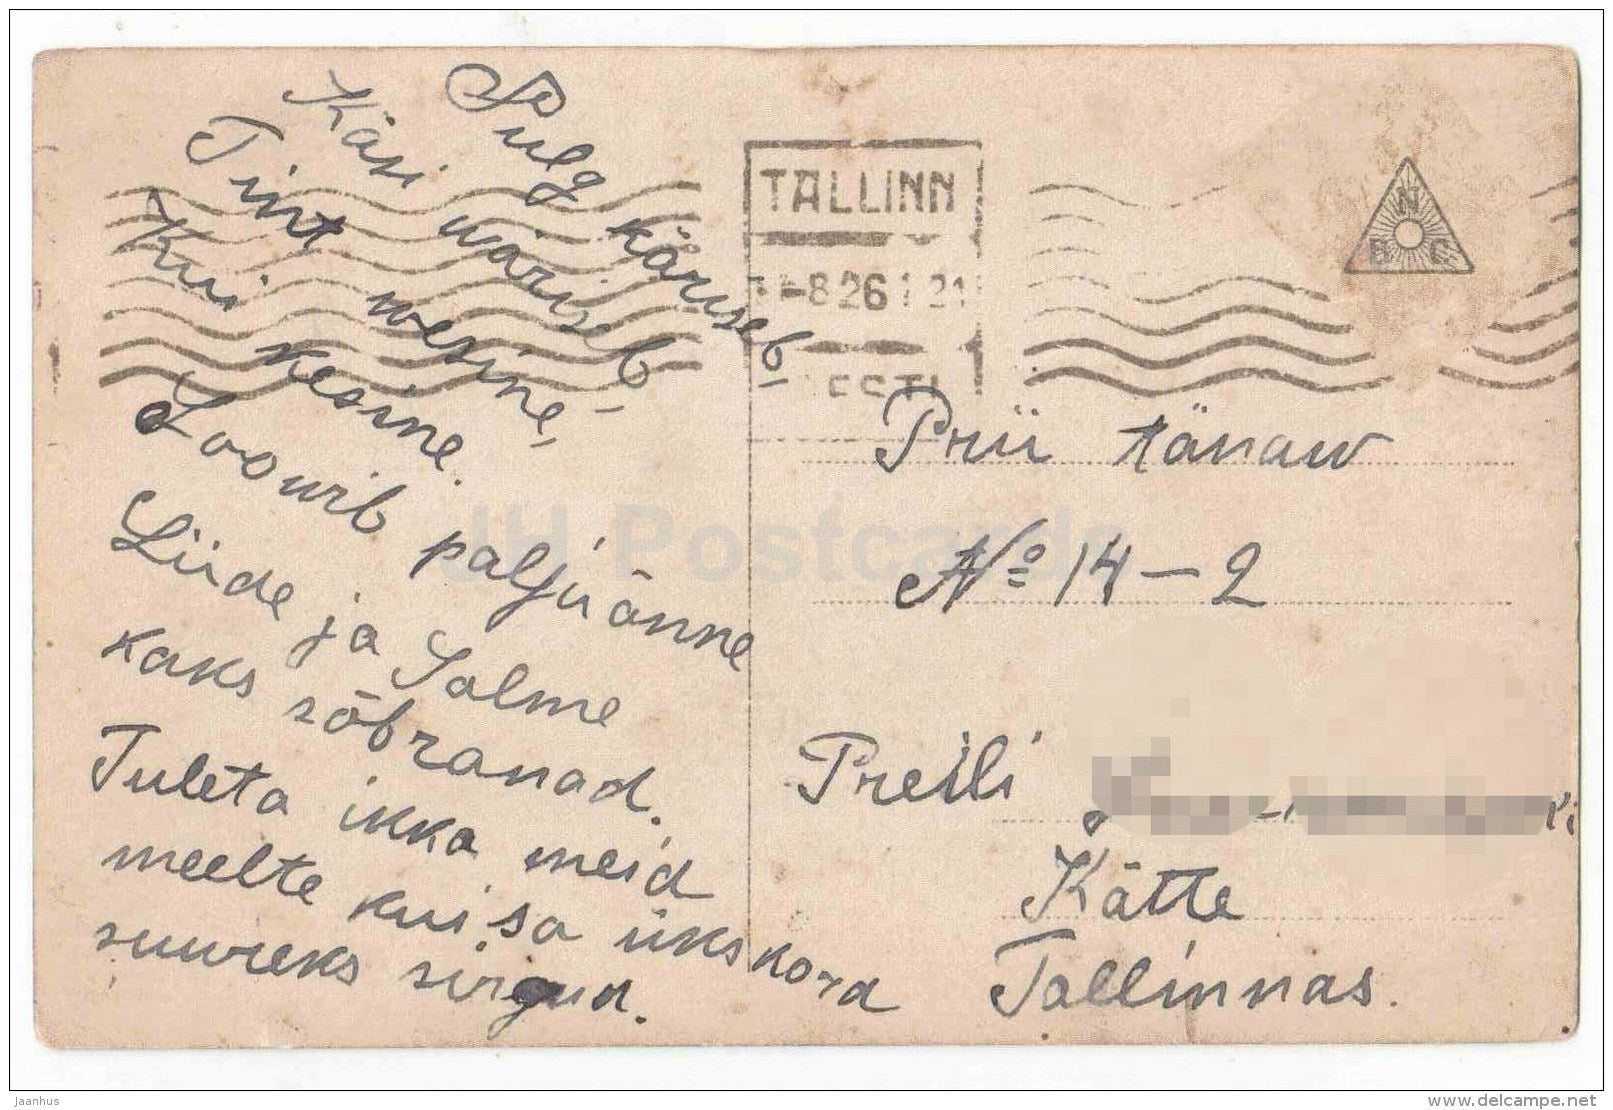 Sulg käriseb,
Käsi väriseb,
Tint vesine,
Kiri kesine.
Soovib palju õnne
Liide ja Salme
kaks sõbranad.
Tuleta ikka meid
meelte kui sa ükskord
suureks sirgud.
TALLINN
-8 26
EESTI
N
B C
Prii tänaw
№ 14-2
Preili
Kätte
Tallinnas.
JH Postcards
Jaanhus
delcampe.net